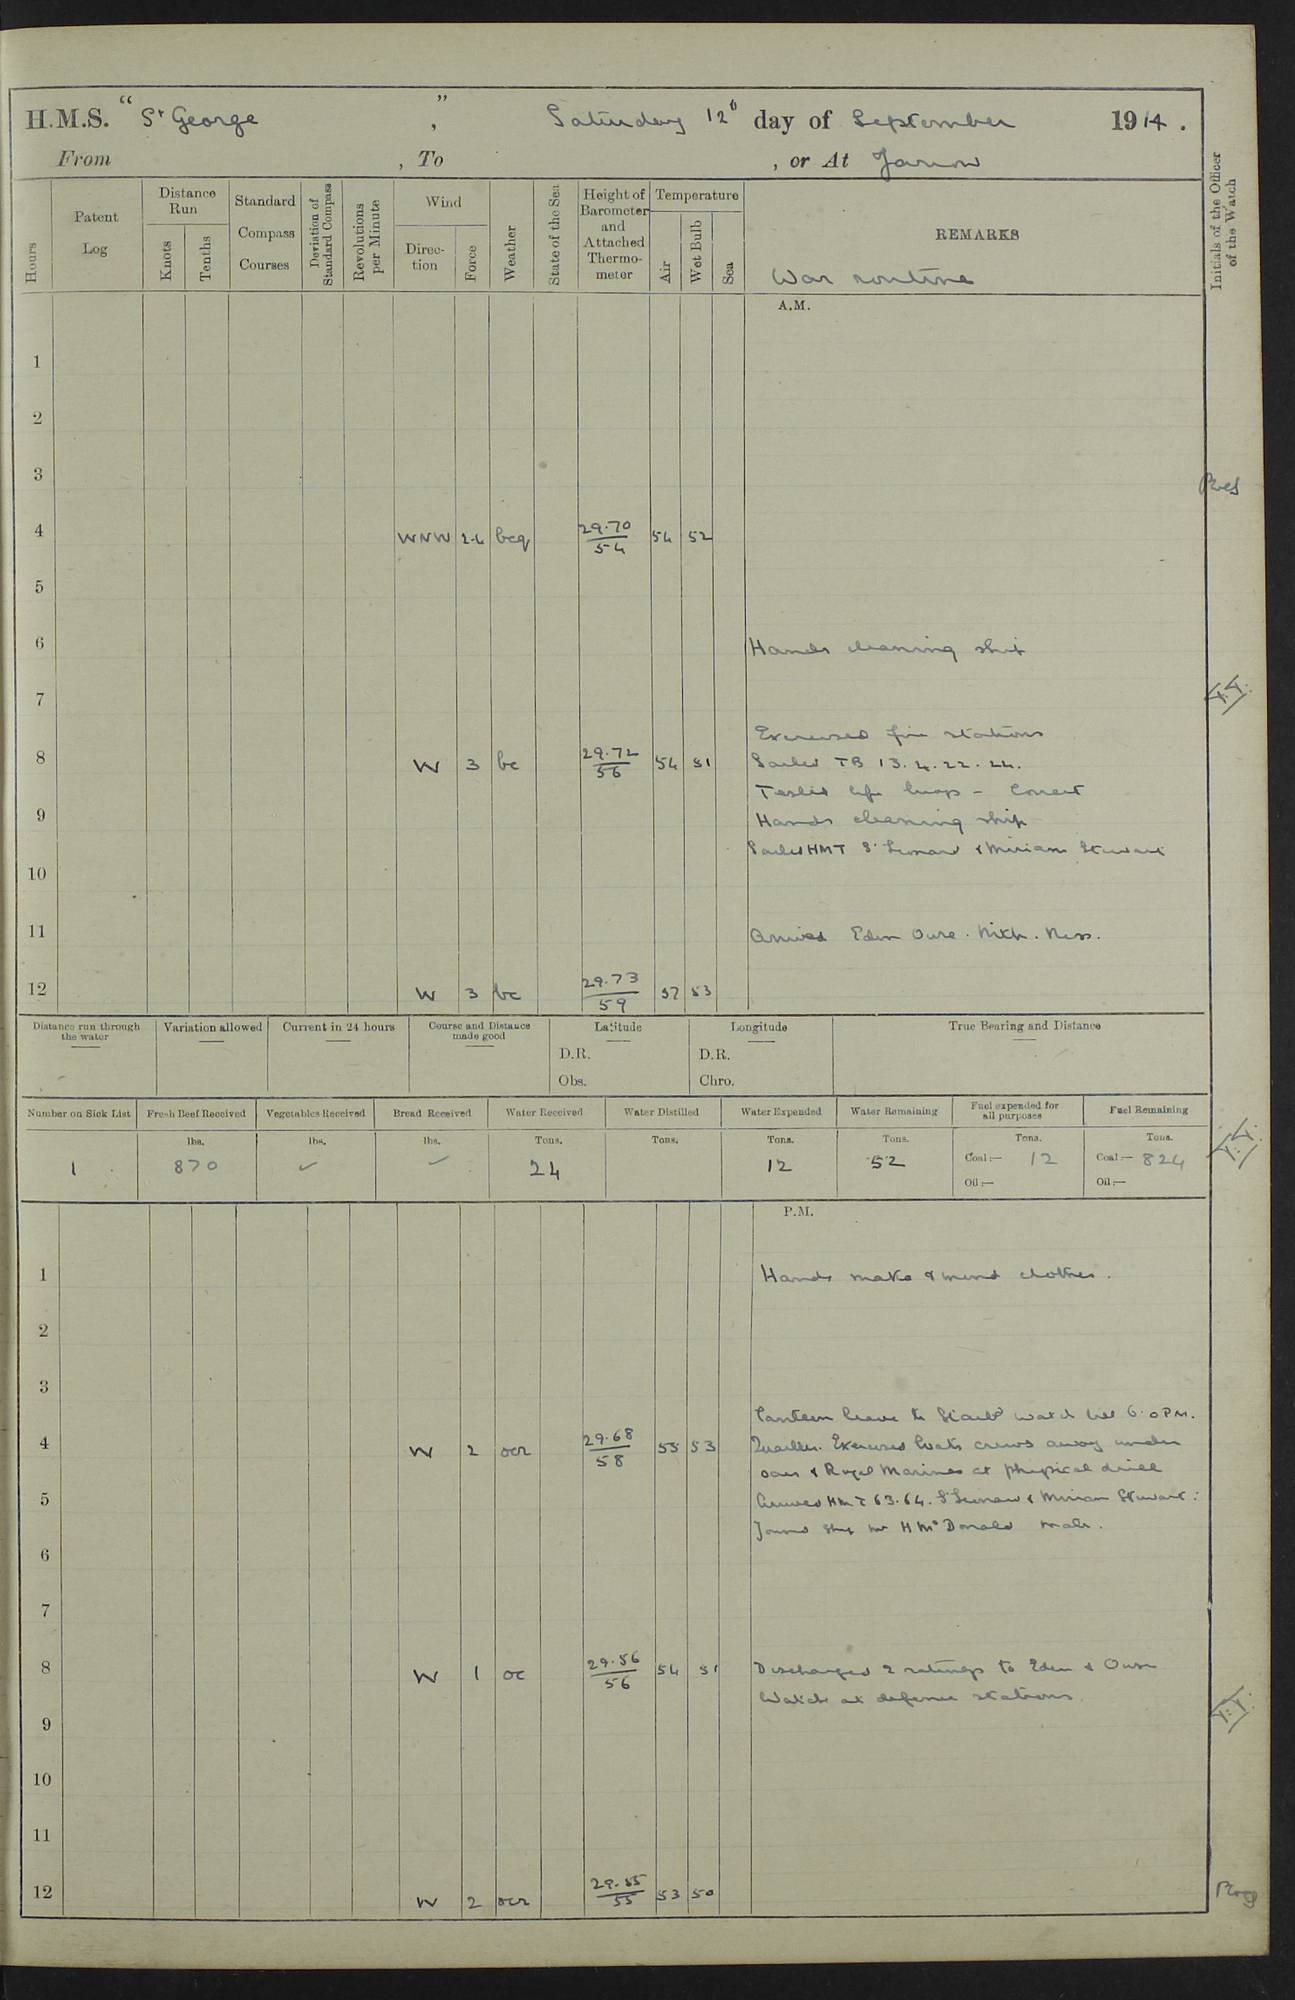 H.M.S. "St George", Saturday 12th day of September 1914.
From , To , or At Jarrow
Hours
Patent Log
Distance Run
Knots
Tenths
Standard Compass Courses
Deviation of Standard Compass
Revolutions per Minute
Wind
Direction
Force
Weather
State of the Sea
Height of Barometer and Attached Thermometer
Temperature
Air
Wet Bulb
Sea
REMARKS
War routine
Initials of the Officer of the Watch
A.M.
1
2
3
4 WNW 2.4 bcq 29.70/54 54 52
5
6 Hands cleaning ship
7
Exercised fire stations
8 W 3 bc 29.72/56 54 51 Sailed TB 13. 4. 22. 24.
Tested life buoys - Correct
9 Hands cleaning ship
Sailed HMT St Leonard & Miriam Stewart
10
11 Arrived Eden Ouse. Nith. Ness.
12 W 3 bc 29.73/59 57 53
Distance run through the water
Variation allowed
Current in 24 hours
Course and Distance made good
Latitude
D.R.
Obs.
Longitude
D.R.
Chro.
True Bearing and Distance
Number on Sick List
Fresh Beef Received
Vegetables Received
Bread Received
Water Received
Water Distilled
Water Expended
Water Remaining
Fuel expended for all purposes
Fuel Remaining
lbs. lbs. lbs. Tons. Tons. Tons. Tons. Tons. Tons.
1 870 ✓ ✓ 24 12 52 Coal:— 12 Coal:— 824
Oil:— Oil:—
P.M.
1 Hands make & mend clothes.
2
3
Canteen leave to Starbd watch till 6.0 PM.
4 W 2 ocr 29.68/58 55 53 Quarters. Exercised boats crews away under
oars & Royal Marines at physical drill
5 Arrived HMT 63. 64. St Leonard & Miriam Stewart:
Joined ship Mr H McDonald mate.
6
7
8 W 1 oc 29.56/56 54 51 Discharged 2 ratings to Eden & Ouse
Watch at defence stations.
9
10
11
12 W 2 ocr 29.55/55 53 50